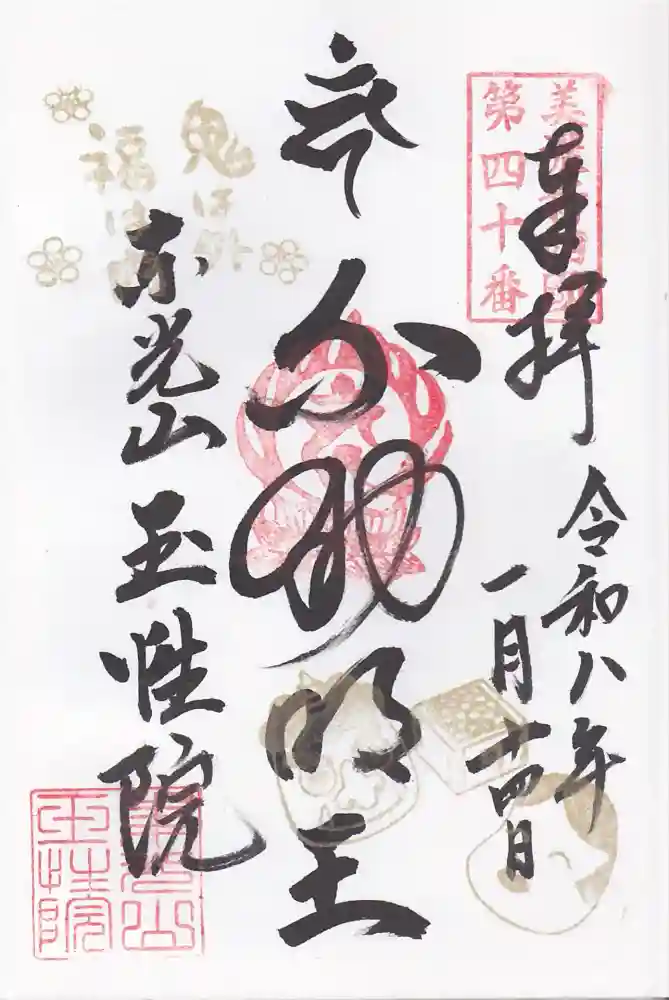 美濃新四国
第四十番
奉拝
令和八年
一月十四日
不動明王
鬼は外
福は内
東光山 玉性院
東光山
玉性院